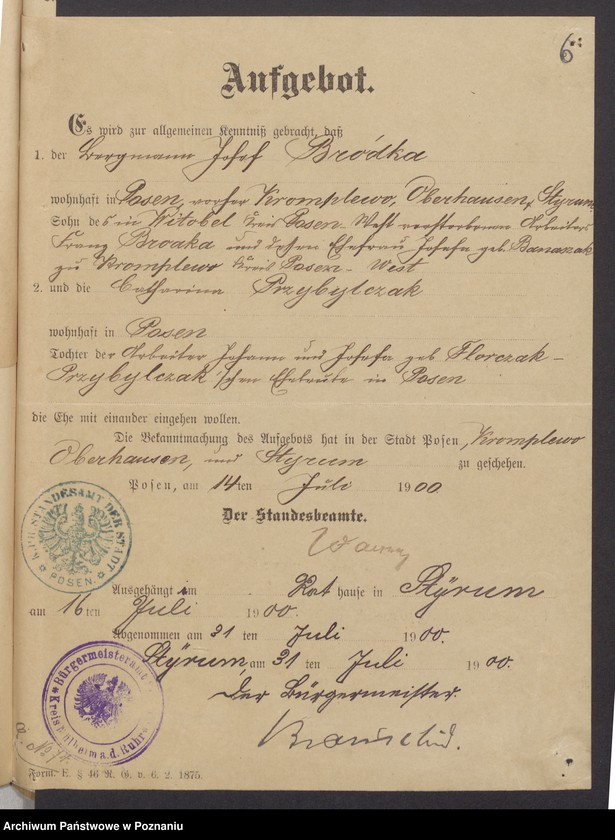 6
Aufgebot.
Es wird zur allgemeinen Kenntniß gebracht, daß
1. der Bergmann Josef Bródka
wohnhaft in Posen, vorher Kromplewo, Oberhausen, Styrum
Sohn des in Witobel Kreis Posen-West verstorbenen Arbeiters
Franz Brodka und dessen Ehefrau Josefa geb. Banaszak
zu Kromplewo Kreis Posen-West
2. und die Catharina Przybylczak
wohnhaft in Posen
Tochter der Arbeiter Johann und Josefa geb Florczak-
Przybylczak'schen Eheleute in Posen
die Ehe mit einander eingehen wollen.
Die Bekanntmachung des Aufgebots hat in der Stadt Posen, Kromplewo
Oberhausen, und Styrum zu geschehen.
Posen, am 14ten Juli 1900
Der Standesbeamte.
K. PR. STANDESAMT DER STADT POSEN.
Ausgehängt im Rathause in Styrum
am 16ten Juli 1900.
Abgenommen am 31ten Juli 1900.
Styrum, am 31ten Juli 1900.
Der Bürgermeister.
Bürgermeisteramt
Kreis Mülheim a. d. Ruhr
Form. E. § 46 R. G. v. 6. 2. 1875.
Archiwum Państwowe w Poznaniu